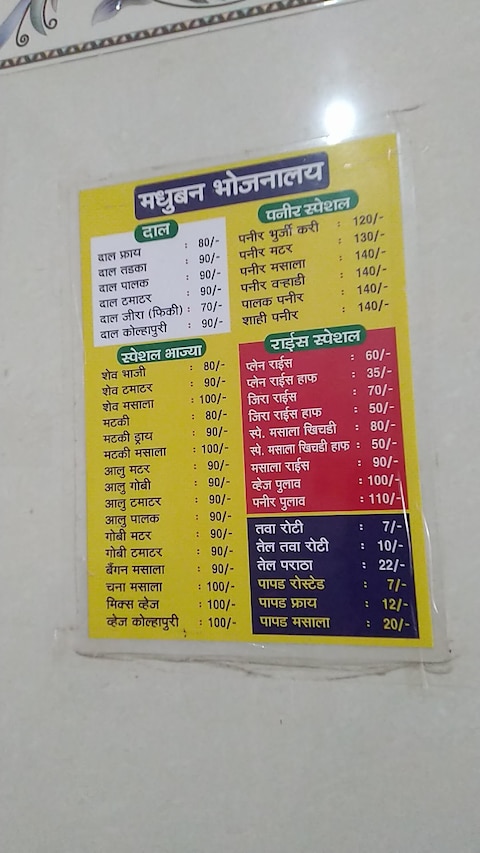 मधुबन भोजनालय
दाल
दाल फ्राय : 80/-
दाल तडका : 90/-
दाल पालक : 90/-
दाल टमाटर : 90/-
दाल जीरा (फिकी) : 70/-
दाल कोल्हापुरी : 90/-
स्पेशल भाज्या
शेव भाजी : 80/-
शेव टमाटर : 90/-
शेव मसाला : 100/-
मटकी : 80/-
मटकी ड्राय : 90/-
मटकी मसाला : 100/-
आलु मटर : 90/-
आलु गोबी : 90/-
आलु टमाटर : 90/-
आलु पालक : 90/-
गोबी मटर : 90/-
गोबी टमाटर : 90/-
बैंगन मसाला : 90/-
चना मसाला : 100/-
मिक्स व्हेज : 100/-
व्हेज कोल्हापुरी : 100/-
पनीर स्पेशल
पनीर भुर्जी करी : 120/-
पनीर मटर : 130/-
पनीर मसाला : 140/-
पनीर वऱ्हाडी : 140/-
पालक पनीर : 140/-
शाही पनीर : 140/-
राईस स्पेशल
प्लेन राईस : 60/-
प्लेन राईस हाफ : 35/-
जिरा राईस : 70/-
जिरा राईस हाफ : 50/-
स्पे. मसाला खिचडी : 80/-
स्पे. मसाला खिचडी हाफ : 50/-
मसाला राईस : 90/-
व्हेज पुलाव : 100/-
पनीर पुलाव : 110/-
तवा रोटी : 7/-
तेल तवा रोटी : 10/-
तेल पराठा : 22/-
पापड रोस्टेड : 7/-
पापड फ्राय : 12/-
पापड मसाला : 20/-